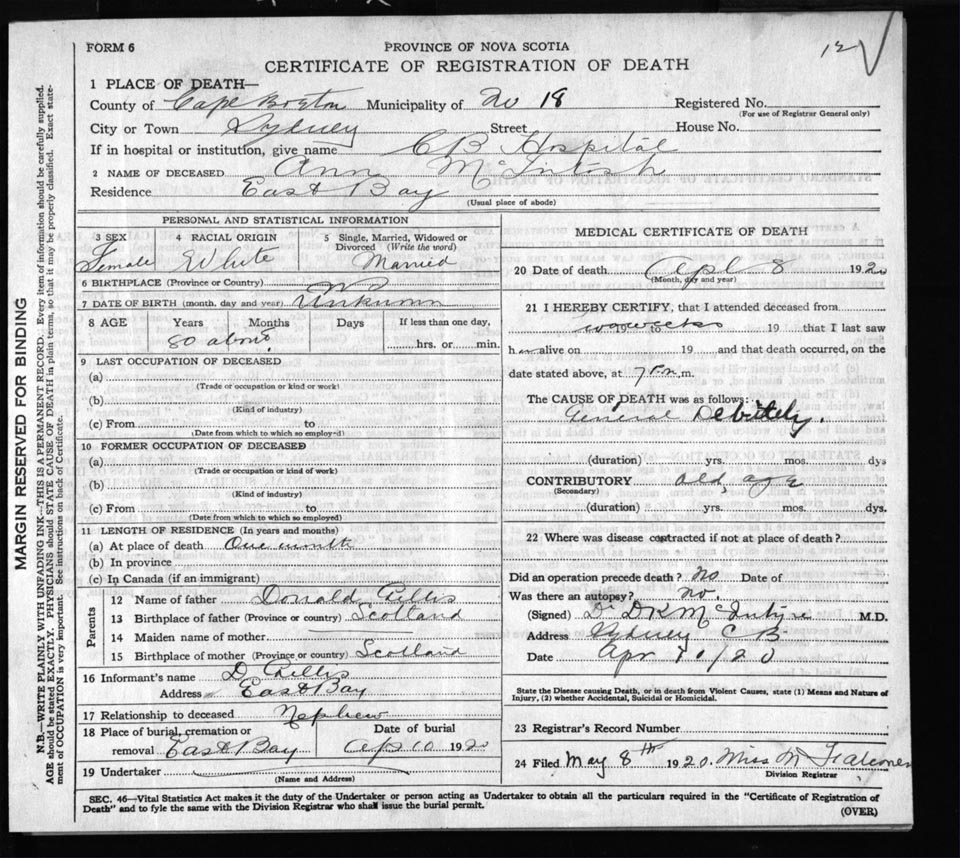 12
FORM 6
PROVINCE OF NOVA SCOTIA
CERTIFICATE OF REGISTRATION OF DEATH
1 PLACE OF DEATH—
County of Cape Breton Municipality of No 18 Registered No.
(For use of Registrar General only)
City or Town Sydney Street House No.
If in hospital or institution, give name CB Hospital
2 NAME OF DECEASED Ann McIntosh
Residence East Bay
(Usual place of abode)
PERSONAL AND STATISTICAL INFORMATION
3 SEX 4 RACIAL ORIGIN 5 Single, Married, Widowed or Divorced (Write the word)
Female White Married
6 BIRTHPLACE (Province or Country)
7 DATE OF BIRTH (month, day and year) Unknown
8 AGE Years Months Days If less than one day,
80 about hrs. or min.
9 LAST OCCUPATION OF DECEASED
(a)
(Trade or occupation or kind or work)
(b)
(Kind of industry)
(c) From to
(Date from which to which so employ-d)
10 FORMER OCCUPATION OF DECEASED
(a)
(Trade or occupation or kind of work)
(b)
(Kind of industry)
(c) From to
(Date from which to which so employed)
11 LENGTH OF RESIDENCE (In years and months)
(a) At place of death One month
(b) In province
(c) In Canada (if an immigrant)
Parents
12 Name of father Donald Gillis
13 Birthplace of father (Province or country) Scotland
14 Maiden name of mother
15 Birthplace of mother (Province or country) Scotland
16 Informant's name D Gillis
Address East Bay
17 Relationship to deceased Nephew
18 Place of burial, cremation or Date of burial
removal East Bay Apr 10 1920
19 Undertaker
(Name and Address)
MEDICAL CERTIFICATE OF DEATH
20 Date of death Apl 8 1920
(Month, day and year)
21 I HEREBY CERTIFY, that I attended deceased from
19 19 that I last saw
h alive on 19 and that death occurred, on the
date stated above, at 7 m.
The CAUSE OF DEATH was as follows:
General Debility.
(duration) yrs. mos. dys
CONTRIBUTORY old age
(Secondary)
(duration) yrs. mos. dys.
22 Where was disease contracted if not at place of death?
Did an operation precede death? No Date of
Was there an autopsy? No.
(Signed) Dr DKMcIntyre M.D.
Address Sydney CB
Date Apr 10/20
State the Disease causing Death, or in death from Violent Causes, state (1) Means and Nature of
Injury, (2) whether Accidental, Suicidal or Homicidal.
23 Registrar's Record Number
24 Filed May 8th 1920. Miss M Falconer
Division Registrar
SEC. 46—Vital Statistics Act makes it the duty of the Undertaker or person acting as Undertaker to obtain all the particulars required in the "Certificate of Registration of
Death" and to fyle the same with the Division Registrar who shall issue the burial permit.
(OVER)
MARGIN RESERVED FOR BINDING
N.B.—WRITE PLAINLY WITH UNFADING INK—THIS IS A PERMANENT RECORD. Every item of information should be carefully supplied.
AGE should be stated EXACTLY. PHYSICIANS should STATE CAUSE OF DEATH in plain terms, so that it may be properly classified. Exact state-
ment of OCCUPATION is very important. See instructions on back of Certificate.